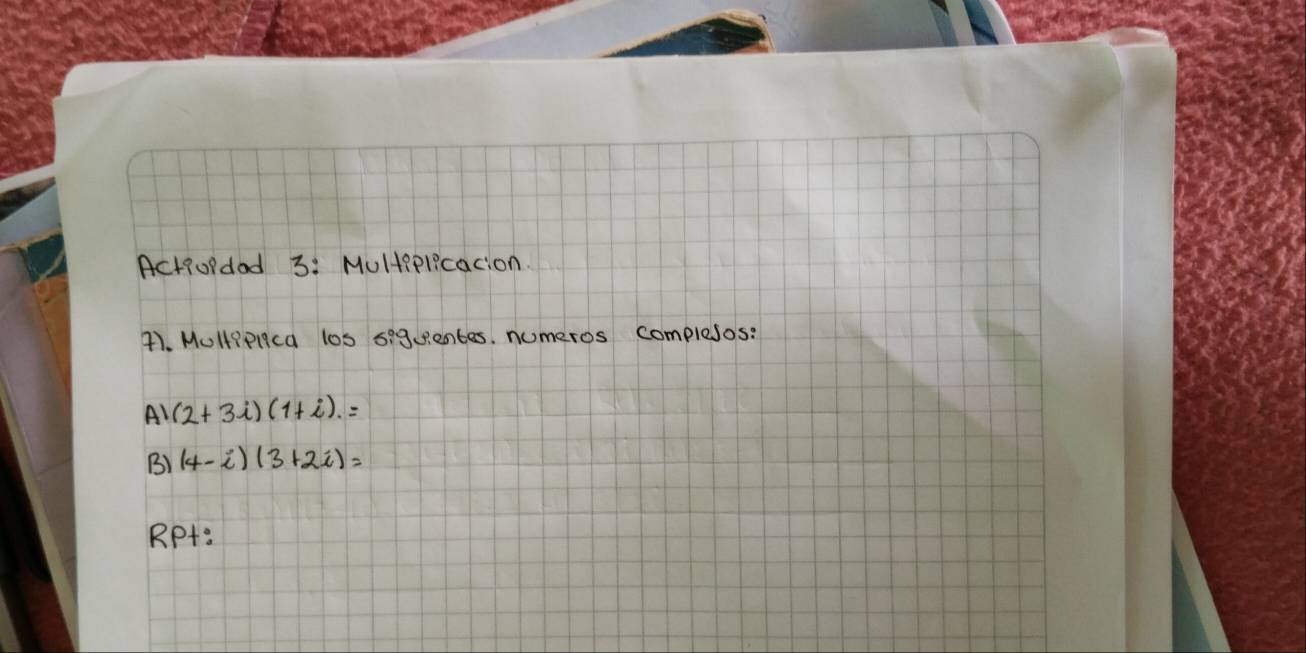 Actividad 3: Multiplicacion.
7). Multiplica los siguientes. numeros complejos:
A) (2+3i)(1+i).=
B) (4-i)(3+2i)=
Rpt: